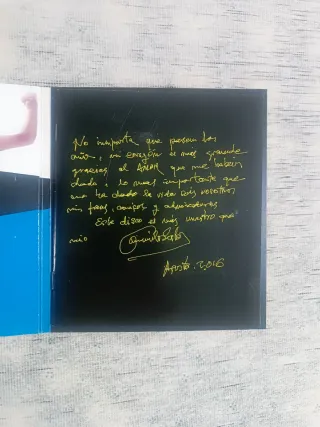 No importa que pasen los
años, mi corazón es mas grande
gracias al AMOR que me habeis
dado, lo mas importante que
me ha dado la vida sois vosotros
mis fans, amigos y admiradores
Este disco es más vuestro que
mio
Camilo Sesto
Agosto, 2,016